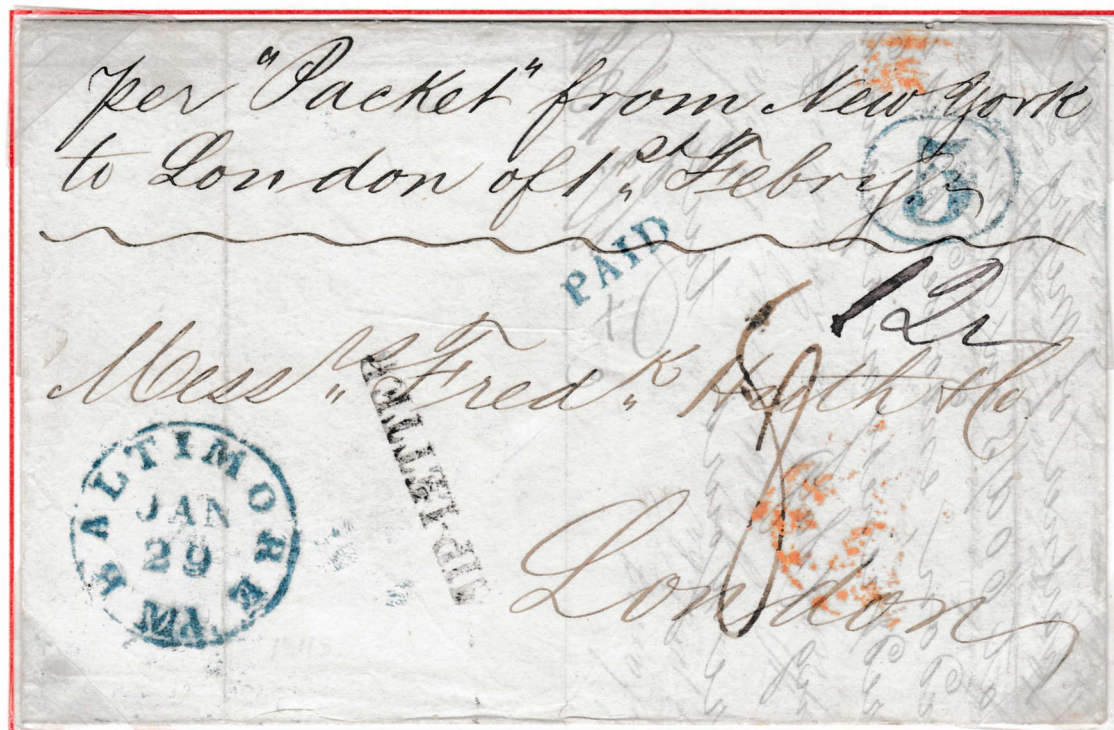 per "Packet" from New York
to London of 1st Febry.
5
PAID
12
8
Messrs Fredk Huth & Co
London
BALTIMORE
JAN
29
MD.
IP-LETTER